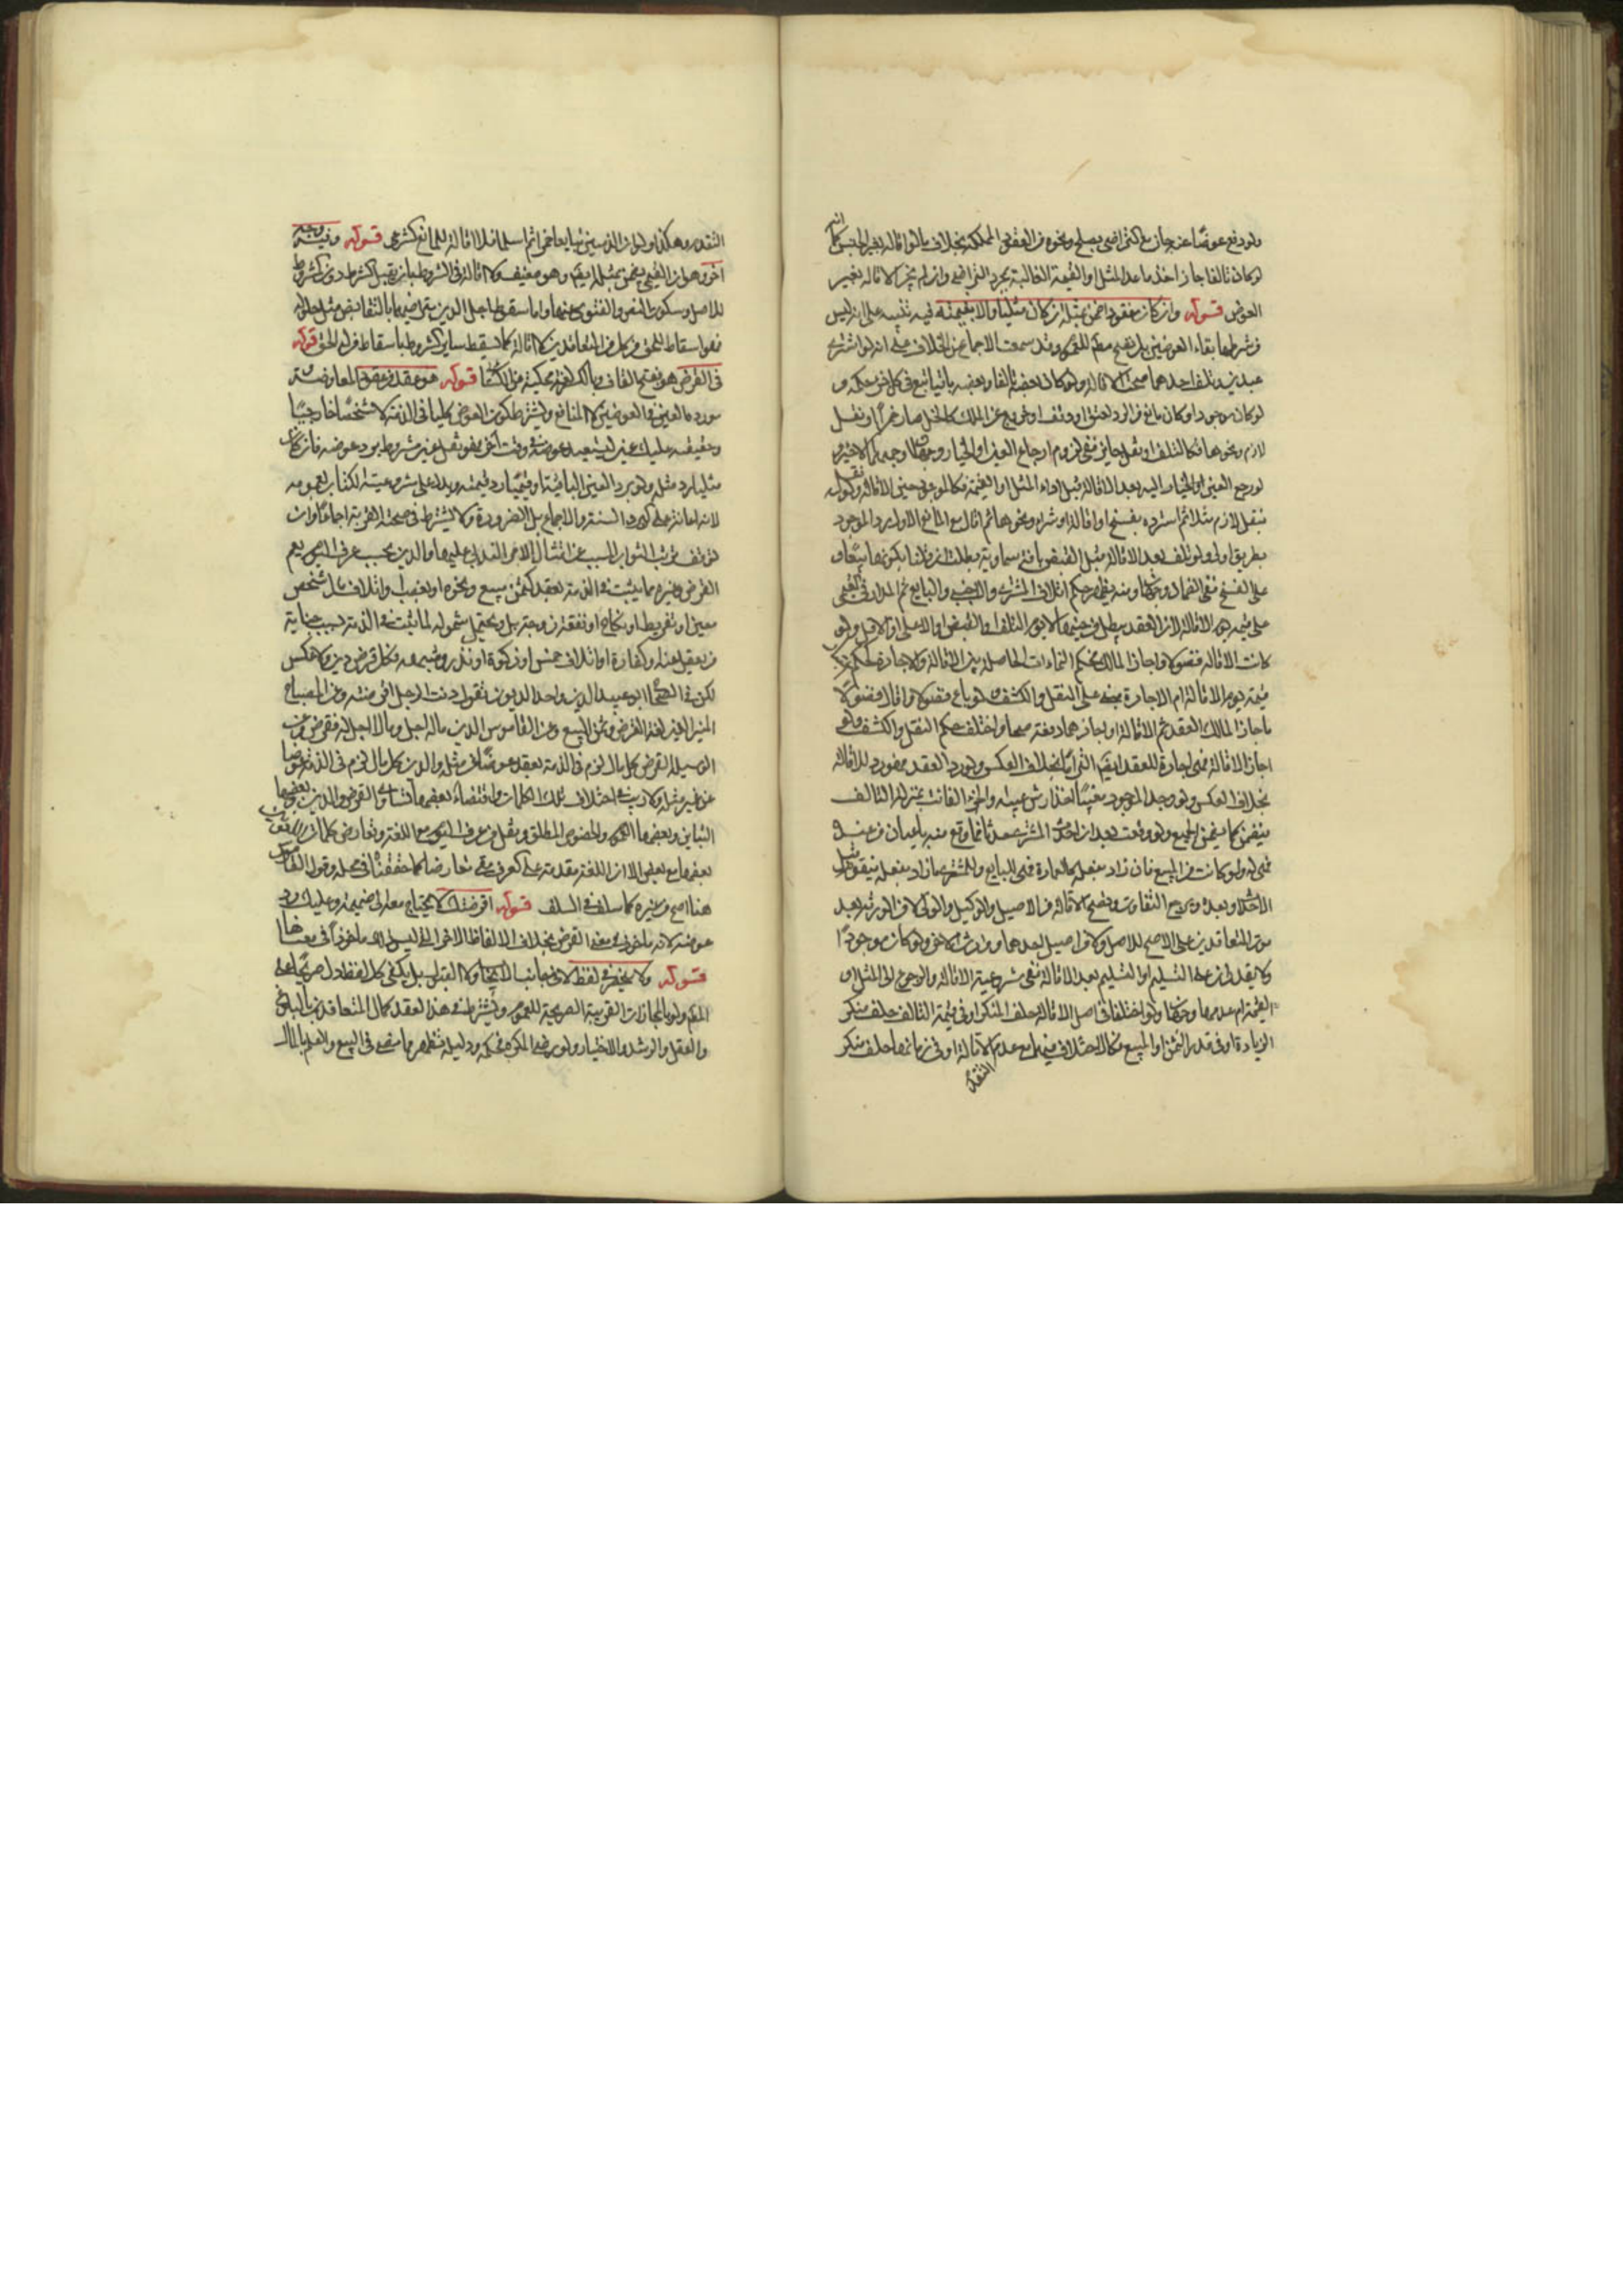 ولو دفع عوضا عنه جاز مع التراضي بصلح ونحوه من العقود المملكة بخلاف ما لو اقاله بغير الجنس كما انه
لو كان تالفا جاز اخذ ما عدا المثل او القيمة الغالبة بمجرد التراضي وان لم يجز الاقالة بغير
العوض قوله وان كان مفقودا ضمن بمثله ان كان مثليا والا بقيمته فيه تنبيه على انه ليس
من شرطها بقاء العوضين بل يصح معه للعموم وقد سمعت الاجماع عن الخلاف على انه لو اشترى
عبدين فتلف احدهما صحت الاقالة ولو كان بعضه تالفا وبعضه باقيا تبع في كل جزء حكمه و
لو كان موجودا وكان مانع من الرد لعتق او وقف او خروج عن الملك كالخل صار خمرا او نقل
لازم ونحوها فكالتلف او نقل جايز ففي لزوم ارجاع العين او الخيار وجهان اوجههما الاخير و
لو رجع العين او الخيار اليه بعد الاقالة قبل اداء المثل او القيمة فكالموجود حين الاقالة ولو كان نقل
بنقل لازم مثلا ثم استرده بفسخ او اقالة او شراء ونحوها ثم اقال مع المانع الاول يرد الموجود
بطريق اولى ولو تلف بعد الاقالة قبل القبض بافة سماوية بطلت ان قلنا بكونها بيعا و
على الفسخ ففي الضمان وجهان ومنه يظهر حكم اتلاف المشتري والاجنبي والبايع ثم المدار في القيمي
على قيمته يوم الاقالة لان العقد يبطل من حينها لا يوم التلف او القبض او الاعلى او الاقل ولو
كانت الاقالة فضولا واجاز المالك فحكم النماءات الحاصلة بين الاقالة والاجارة
قيمته يوم الاقالة ام الاجازة مبني على النقل والكشف ولو باع فضولا واقال فضولا
فاجاز المالك العقد ثم الاقالة او اجازهما دفعة صحا واختلف حكم النقل والكشف ولو
اجاز الاقالة فهي اجازة للعقد ايضا التزاما بخلاف العكس ولو رد العقد فهو رد للاقالة
بخلاف العكس ولو وجد الموجود معيبا اخذ ارش عيبه والجزء الفائت بمنزلة التالف
فيضمن كما يضمن الجميع ولو وقعت بعد ان احدث المشتري حدثا فما وقع منه باعيان من عنده
فهي له ولو كانت من المبيع فان زاد بفعله كالعمارة فهي للبايع وللمشتري ما زاد بفعله فيقوم قبل
الاحداث وبعده ويرجع التفاوت وتصح الاقالة من الاصيل والوكيل والولي لا من الورثة بعد
موت المتعاقدين على الاصح للاصل ولا من اصيل احدهما ووارث الاخر ولو كان موجودا
ولا يقدر على التسليم او التسليم بعد الاقالة ففي شرعية الاقالة والرجوع الى المثل او
القيمة ام عدمها وجهان ولو اختلفا في اصل الاقالة حلف المنكر او في قيمة التالف حلف منكر
الزيادة او في قدر الثمن او المبيع فكالاختلاف فيهما مع عدم الاقالة او في زمانها حلف منكر
التقدم
التقدم وهكذا ولو ان الذميين تبايعا خمرا ثم اسلما فلا اقالة للمانع الشرعي قوله وفيه وجه
اخر وهو ان القيمي يضمن بمثله ايضا وهو ضعيف ولا اقالة في الشروط بان يقيل الشرط دون المشروط
للاصل وسكوت النص والفتوى عنها واما سقوط اجل الدين بتراضيهما بالتقابض مثل حلوله
فهو اسقاط للحق من كل من المتعاقدين لا اقالة كما يسقط ساير الشروط باسقاط من له الحق قوله
في القرض هو بفتح القاف وبالكسر لغة محكية عن الكسائي قوله هو عقد من عقود المعاوضة
مورده العين في العوضين لا المنافع ويشترط كون العوض كليا في الذمة لا شخصا خارجيا
وحقيقته تمليك عين ليستعيد عوضه في وقت اخر فهو نقل عين مشروط برد عوضه فان كان
مثليا رد مثله ولو برد العين الباقية او قيميا رد قيمته ويدل على مشروعيته الكتاب بعمومه
لانه اعانة على البر والسنة والاجماع بل الضرورة ولا يشترط في صحته القربة اجماعا وان
توقف ترتب الثواب المسبب عن امتثال الامر الندبي عليها والدين بحسب عرف الشرع يعم
القرض وغيره مما يثبت في الذمة بعقد كثمن مبيع ونحوه او بغصب او اتلاف مال شخص
معين او تفريط او نكاح او نفقة زوجة بل ويحتمل شموله لما يثبت في الذمة بسبب جناية
من يعقل عنه او كفارة او اتلاف خمس او زكوة او نذر وشبهه فكل قرض دين ولا عكس
لكن في الصحاح ابو عبيد الدين واحد الديون تقول دنت الرجل اقرضته وعن المصباح
المنير الدين لغة القرض وثمن المبيع وعن القاموس الدين ما له اجل وما لا اجل له فقرض وعن
الوسيلة القرض كل مال لزم في الذمة بعقد عوضا من مثله والدين كل مال لزم في الذمة عوضا
عن غير مثله ولا ريب في اختلاف تلك الكلمات واقتضاء بعضها تساوي القرض والدين وبعضها
التباين وبعضها العموم والخصوص المطلق وبنقل من عرف الشرع مع اللغة وتعارض كلمات اهل اللغة
بعضها مع بعض الا ان اللغة مقدمة على العرف متى تعارضا كما حققناه في محله وقول القاموس
هنا اصح من غيره كما سلف في السلف قوله اقرضتك لا يحتاج معه الى ضميمة وعليك رد
عوضه لانه ماخوذ في معنى القرض بخلاف الالفاظ الاخر التي ليس الرد ماخوذا في معناها
قوله ولا ينحصر في لفظ لا في جانب الايجاب ولا القبول بل يكفي كل لفظ دل صريحا على
المعنى ولو بالمجازات القريبة الصريحة للعموم ويشترط في هذا العقد كمال المتعاقدين بالبلوغ
والعقل والرشد والاختيار ولو رضي المكره فحكمه ودليله تظهر مما مضى في البيع والعلم بالمال